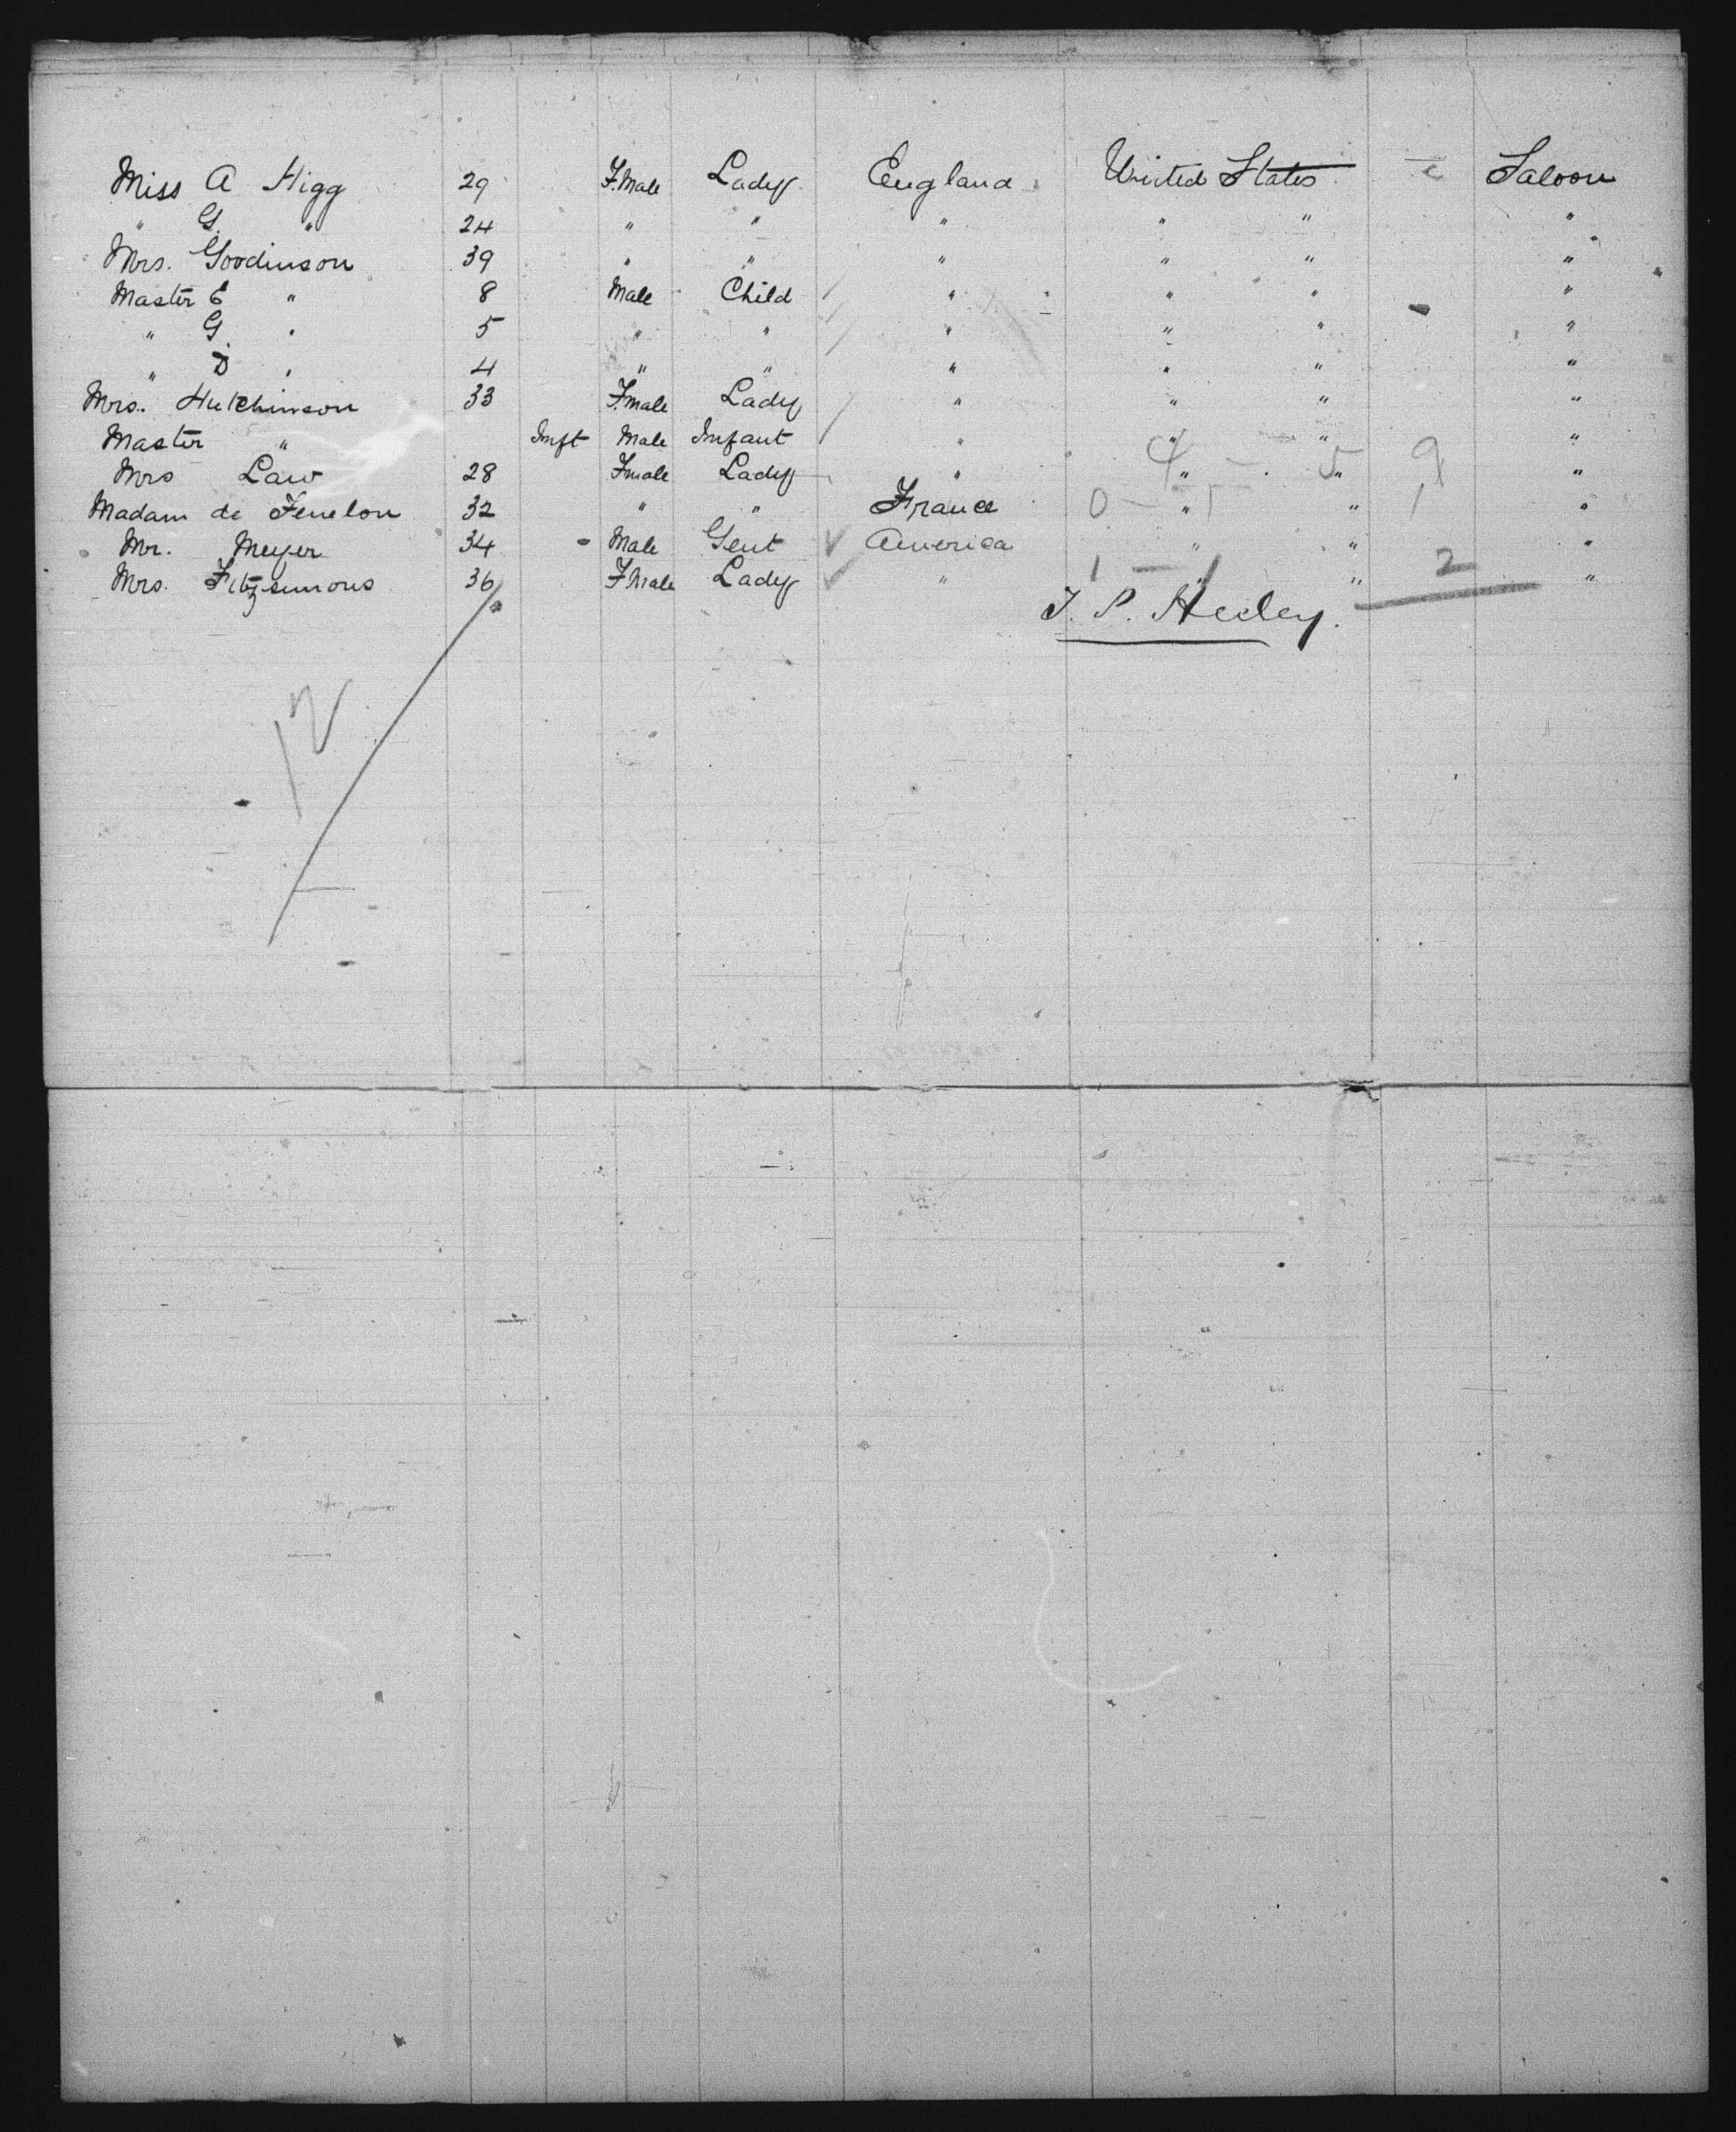 Miss A Higg 29 F.Male Lady England United States Saloon
" G. " 24 " " " " " "
Mrs. Goodinson 39 " " " " " "
Master E " 8 Male Child " " " "
" G. " 5 " " " " " "
" D " 4 " " " " " "
Mrs. Hutchinson 33 F.male Lady " " " "
Master " Inft Male Infant " " " "
Mrs Law 28 Fmale Lady " " " 4 - 5 9 "
Madam de Fenelon 32 " " France " " 0 - 1 1 "
Mr. Meyer 34 Male Gent America " " "
Mrs. Fitzsimons 36 FMale Lady " 1 - 1 " 2 "
J. P. Hedley.
12